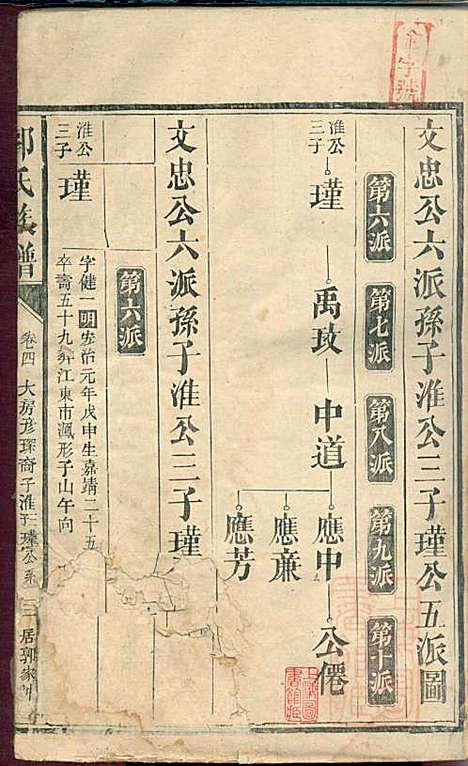 金字號
文忠公六派孫子淮公三子瑾公五派圖
第六派
第七派
第八派
第九派
第十派
淮公
三子
瑾
禹玫
中道
應申
公僊
應廉
應芳
文忠公六派孫子淮公三子瑾
第六派
淮公
三子
瑾
字健一明
治元年戊申生嘉靖二十五
卒壽五十九葬江東市渢形子山午向
郭氏族譜
卷四
大房彥琛裔子淮子瑾公系
三
居郭家